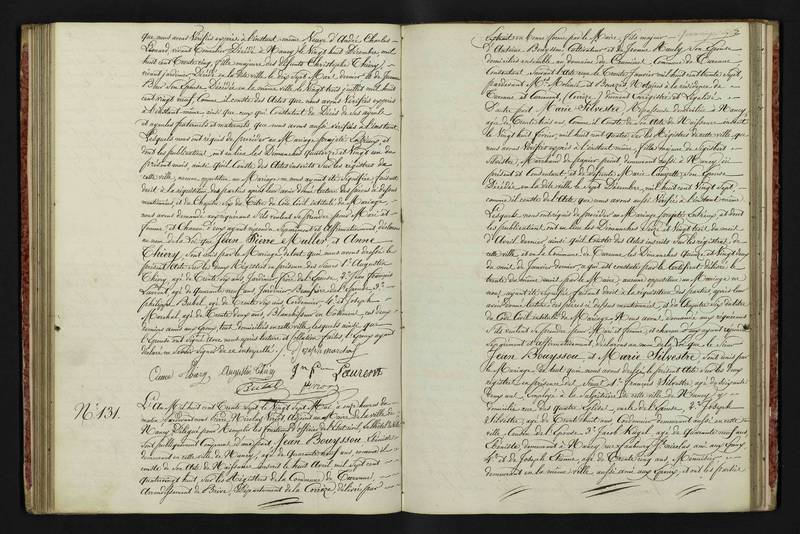 que nous avons Vérifiés exposés à l'instant même Veuve d'André Charles
Léonard, vivant décédé à Nancy le Vingt huit Décembre, mil
huit cent Trente cinq, fille majeure des défunts Christophe Thiéry,
vivant jardinier, décédé en la dite ville le dix sept Mai dernier & de Jeanne
son Epouse Décédée en la même ville le Vingt trois juillet mil huit
cent vingt neuf, comme il conste des Actes que nous avons Vérifiés exposés
à l'instant même ainsi que ceux qui constatent le Décès de ses ayeuls
et ayeules paternels et maternels que nous avons aussi vérifiés à l'instant.
Lesquels nous ont requis de procéder au Mariage projeté entr'eux, et
dont les publications ont eu lieu, les Dimanches quatorze et Vingt un du
présent mois ainsi qu'il conste des Actes inscrits sur les registres de
cette ville, aucune opposition au Mariage ne nous ayant été signifiée, faisant
droit à la réquisition des parties après leur avoir donné lecture des pièces ci dessus
mentionnées et du Chapitre Six du Titre du Code Civil intitulé du Mariage,
nous avons demandé aux requérants s'ils veulent se prendre pour Mari et
femme, et Chacun d'eux ayant répondu séparément et affirmativement, déclarons
au nom de la Loi que Jean Pierre Muller et Anne
Thiéry sont unis par le Mariage de tout quoi nous avons dressé le
présent Acte sur les deux Registres en présence des Sieurs 1° Augustin
Thiéry, agé de Trente ans Jardinier frère de l'Epouse, 2° Jean François
Laurent, agé de Quarante neuf ans Jardinier Beaufrère de l'Epouse, 3°
philippe Butel, agé de Trente Six ans Cordonnier, 4° et Joseph
Marchal, agé de Trente deux ans, Blanchisseur en Cotonnes, ces deux
derniers amis aux Epoux, tous domiciliés en cette ville, lesquels ainsi que
l'Epoux ont signé avec nous après lecture et collation faites, l'Epouse ayant
déclaré ne Savoir signer de ce interpellée. Joseph marchal
Augustin Thiéry Laurent
Butel
N° 131. L'An Mil huit cent Trente Sept, le Vingt Sept Mai, à onze heures du
matin, pardevant nous Adjoint au Maire de la ville de
Nancy Délégué pour remplir les fonctions d'officier de l'Etat civil,
sont publiquement Comparus d'une part Jean Bouyssou, Ebéniste
demeurant en cette ville de Nancy, agé de Quarante huit ans, comme il
conste de son Acte de Naissance inscrit le huit Avril, mil sept cent
quatrevingt huit, sur les Registres de la Commune de Turenne,
Arrondissement de Brive, Département de la Corrèze, délivrée par
le Maire, fils majeur
d'Antoine Bouyssou, Cultivateur et de Jeanne son Epouse
domiciliés ensemble au commune de Turenne
Consentant suivant Acte reçu le Trente Janvier mil huit cent trente Sept
pardevant Me Notaires à la résidence de
Turenne (Corrèze) dûment enregistré et Légalisé.
D'autre part Marie Silvestre domiciliée à Nancy,
agée de Trente trois ans Comme il Conste de son Acte de Naissance inscrit
le Vingt huit février, mil huit cent quatre sur les Registres de cette ville, que
nous avons Vérifiés exposés à l'instant même, fille majeure de
Silvestre, Marchand de papier peint demeurant aussi à Nancy, ici
présent et consentant et de défunte Marie son Epouse
Décédée en la dite ville le Sept Décembre, mil huit cent Vingt Sept,
comme il conste de l'Acte que nous avons aussi Vérifié à l'instant même.
Lesquels nous ont requis de procéder au Mariage projeté entr'eux, et dont
les publications ont eu lieu les Dimanches Seize et Vingt trois du mois
d'Avril dernier ainsi qu'il conste des Actes inscrits sur les registres de
cette ville, et en la Commune de Turenne les Dimanches Quinze et Vingt deux
du mois de Janvier dernier, ce qui est constaté par le Certificat délivré le
trente du même mois par le Maire, aucune opposition au Mariage ne
nous ayant été signifiée, faisant droit à la réquisition des parties, après leur
avoir donné lecture des pièces ci dessus mentionnées, et du Chapitre Six du titre
du Code Civil intitulé du Mariage, Nous avons demandé aux requérants
s'ils veulent se prendre pour Mari et femme, et chacun d'eux ayant répondu
séparément et affirmativement, déclarons au nom de la Loi que le Sieur
Jean Bouyssou et Marie Silvestre sont unis par
le Mariage, de tout quoi nous avons dressé le présent Acte sur les deux
registres en présence des Sieurs 1° François Silvestre, agé de
ans Employé à la de cette ville de Nancy, y
domicilié rue des quatre Eglises, oncle de l'Epouse, 2° Joseph
Silvestre, agé de Trente huit ans Cordonnier demeurant aussi en cette
ville Cousin de l'Epouse, 3° Jacob agé de Quarante neuf ans
Ebéniste, demeurant à Nancy rue faubourg St Nicolas ami aux Epoux,
4° et de Joseph Etienne, agé de Trente cinq ans, Menuisier,
demeurant en la même ville, aussi ami aux Epoux, et ont les parties